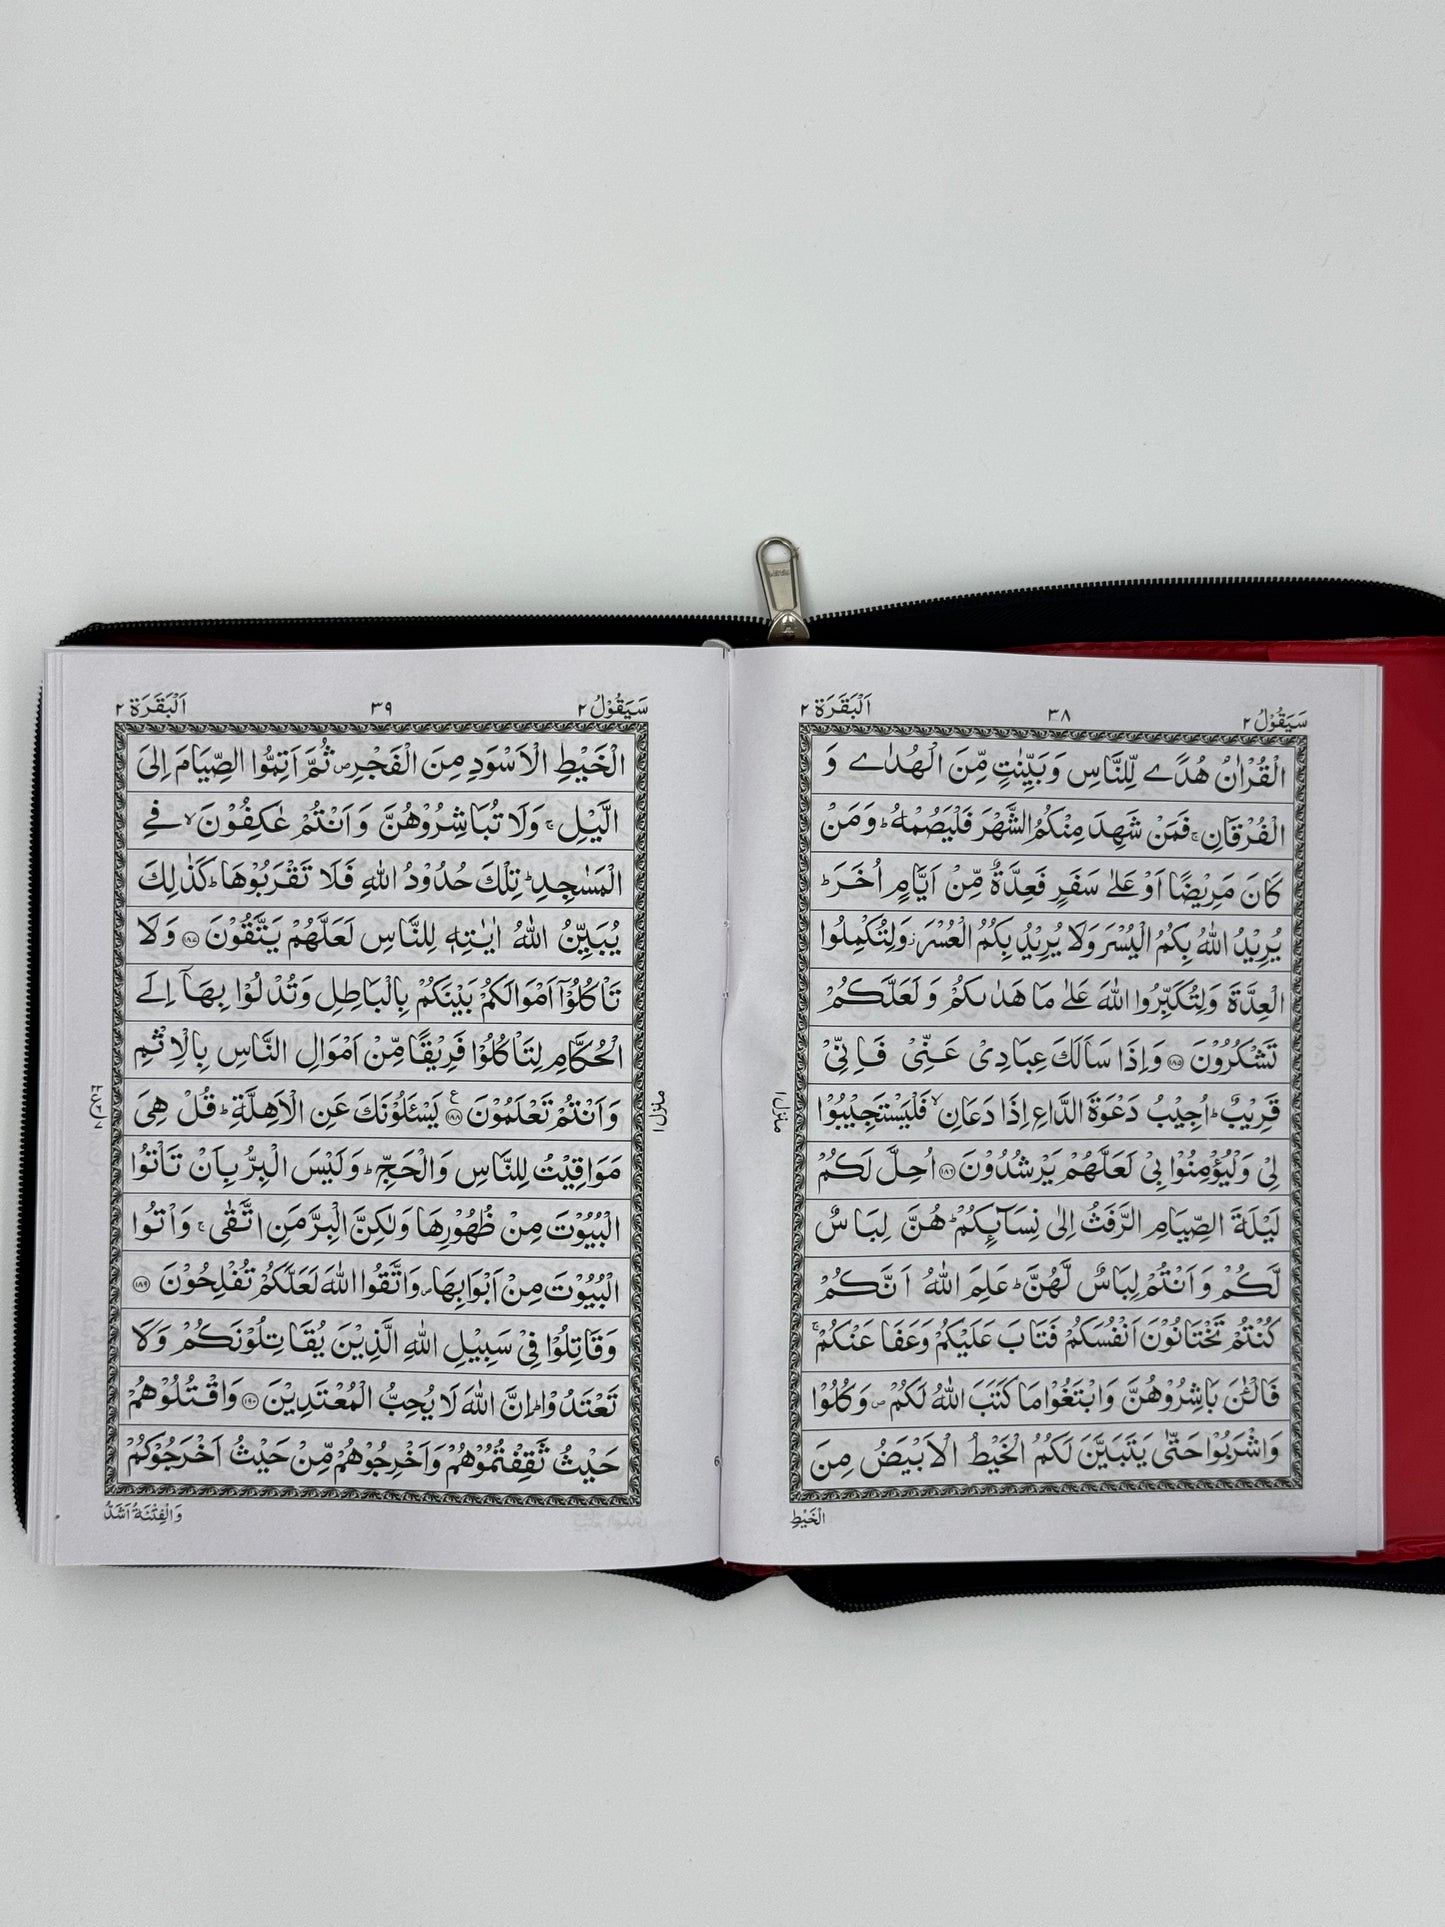 سَيَقُوْلُ ٢
٣٨
اَلْبَقَرَة ٢
الْقُرْاٰنُ هُدًے لِّلنَّاسِ وَبَيِّنٰتٍ مِّنَ الْهُدٰے وَ
الْفُرْقَانِ ۚ فَمَنْ شَهِدَ مِنْكُمُ الشَّهْرَ فَلْيَصُمْهُ ؕ وَمَنْ
كَانَ مَرِيْضًا اَوْ عَلٰے سَفَرٍ فَعِدَّةٌ مِّنْ اَيَّامٍ اُخَرَ ؕ
يُرِيْدُ اللّٰهُ بِكُمُ الْيُسْرَ وَلَا يُرِيْدُ بِكُمُ الْعُسْرَ ز وَلِتُكْمِلُوا
الْعِدَّةَ وَلِتُكَبِّرُوا اللّٰهَ عَلٰے مَا هَدٰىكُمْ وَ لَعَلَّكُمْ
تَشْكُرُوْنَ ١٨٥ وَاِذَا سَاَلَكَ عِبَادِىْ عَنِّىْ فَاِنِّىْ
قَرِيْبٌ ؕ اُجِيْبُ دَعْوَةَ الدَّاعِ اِذَا دَعَانِ ۙ فَلْيَسْتَجِيْبُوْا
لِىْ وَلْيُؤْمِنُوْا بِىْ لَعَلَّهُمْ يَرْشُدُوْنَ ١٨٦ اُحِلَّ لَكُمْ
لَيْلَةَ الصِّيَامِ الرَّفَثُ اِلٰى نِسَآئِكُمْ ؕ هُنَّ لِبَاسٌ
لَّكُمْ وَ اَنْتُمْ لِبَاسٌ لَّهُنَّ ؕ عَلِمَ اللّٰهُ اَنَّكُمْ
كُنْتُمْ تَخْتَانُوْنَ اَنْفُسَكُمْ فَتَابَ عَلَيْكُمْ وَعَفَا عَنْكُمْ ۚ
فَالْـٰٔنَ بَاشِرُوْهُنَّ وَابْتَغُوْا مَا كَتَبَ اللّٰهُ لَكُمْ ص وَكُلُوْا
وَاشْرَبُوْا حَتّٰى يَتَبَيَّنَ لَكُمُ الْخَيْطُ الْاَبْيَضُ مِنَ
منزل ١
الْخَيْطِ
سَيَقُوْلُ ٢
٣٩
اَلْبَقَرَة ٢
الْخَيْطِ الْاَسْوَدِ مِنَ الْفَجْرِ ص ثُمَّ اَتِمُّوا الصِّيَامَ اِلَى
الَّيْلِ ۚ وَلَا تُبَاشِرُوْهُنَّ وَاَنْتُمْ عٰكِفُوْنَ ۙ فِے
الْمَسٰجِدِ ؕ تِلْكَ حُدُوْدُ اللّٰهِ فَلَا تَقْرَبُوْهَا ؕ كَذٰلِكَ
يُبَيِّنُ اللّٰهُ اٰيٰتِهٖ لِلنَّاسِ لَعَلَّهُمْ يَتَّقُوْنَ ١٨٧ وَلَا
تَاْكُلُوْٓا اَمْوَالَكُمْ بَيْنَكُمْ بِالْبَاطِلِ وَتُدْلُوْا بِهَآ اِلَے
الْحُكَّامِ لِتَاْكُلُوْا فَرِيْقًا مِّنْ اَمْوَالِ النَّاسِ بِالْاِثْمِ
وَاَنْتُمْ تَعْلَمُوْنَ ١٨٨ ع يَسْـَٔلُوْنَكَ عَنِ الْاَهِلَّةِ ؕ قُلْ هِىَ
مَوَاقِيْتُ لِلنَّاسِ وَالْحَجِّ ؕ وَلَيْسَ الْبِرُّ بِاَنْ تَاْتُوا
الْبُيُوْتَ مِنْ ظُهُوْرِهَا وَلٰكِنَّ الْبِرَّ مَنِ اتَّقٰى ۚ وَاْتُوا
الْبُيُوْتَ مِنْ اَبْوَابِهَا ص وَاتَّقُوا اللّٰهَ لَعَلَّكُمْ تُفْلِحُوْنَ ١٨٩
وَقَاتِلُوْا فِىْ سَبِيْلِ اللّٰهِ الَّذِيْنَ يُقَاتِلُوْنَكُمْ وَلَا
تَعْتَدُوْا ؕ اِنَّ اللّٰهَ لَا يُحِبُّ الْمُعْتَدِيْنَ ١٩٠ وَاقْتُلُوْهُمْ
حَيْثُ ثَقِفْتُمُوْهُمْ وَاَخْرِجُوْهُمْ مِّنْ حَيْثُ اَخْرَجُوْكُمْ
منزل ١
وَالْفِتْنَةُ اَشَدُّ